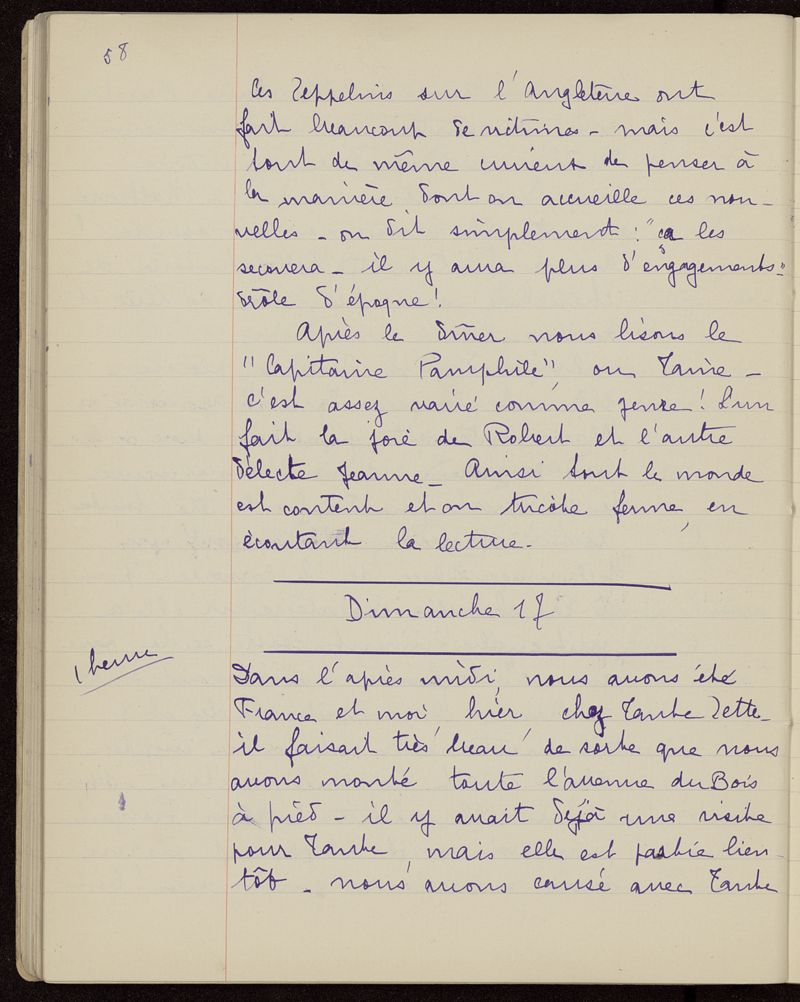 58
Ces Zeppelins sur l'Angleterre ont
fait beaucoup de victimes - mais c'est
tout de même curieux de penser à
la manière dont on accueille ces nou-
velles - on dit simplement : "ça les
secouera - il y aura plus d'engagements"
drôle d'époque !
Après le dîner nous lisons le
"Capitaine Pamphile" ou Taine -
c'est assez varié comme genre ! L'un
fait la joie de Robert et l'autre
délecte Jeanne - Ainsi tout le monde
est content et on tricote ferme, en
écoutant la lecture -
Dimanche 17
1 heure
Dans l'après midi, nous avons été
France et moi, hier, chez Tante Zette -
il faisait très beau, de sorte que nous
avons monté toute l'avenue du Bois
à pied - il y avait déjà une visite
pour Tante, mais elle est partie bien-
tôt - nous avons causé avec Tante